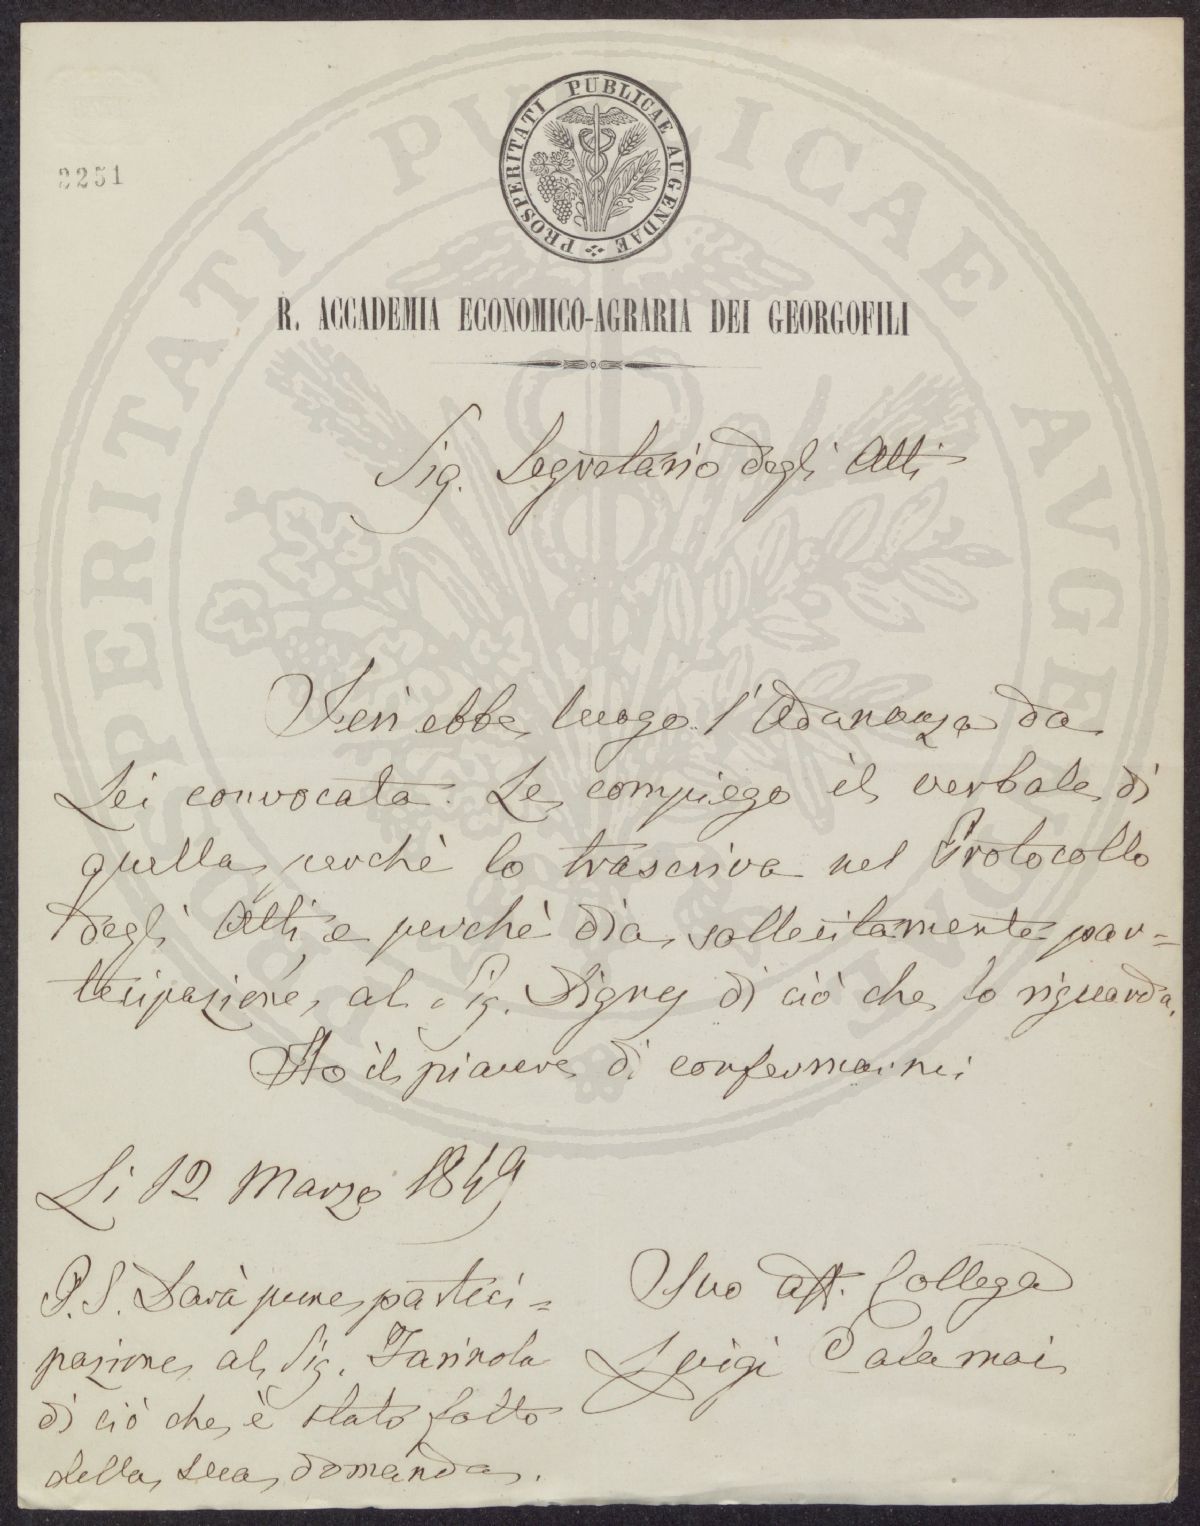 PROSPERITATI PUBLICAE AUGENDAE
2251
R. ACCADEMIA ECONOMICO-AGRARIA DEI GEORGOFILI
Sig. Segretario degli Atti
Ieri ebbe luogo l'Adunanza da
Lei convocata. Le compiego il verbale di
quella perchè lo trascriva nel Protocollo
degli Atti e perchè dia sollecitamente par=
tecipazione al Sig. Digny di ciò che lo riguarda.
Ho il piacere di confermarmi
Li 12 Marzo 1849
Suo aff. Collega
Luigi Calamai
P.S. Darà pure parteci=
pazione al Sig. Farinola
di ciò che è stato fatto
della sua domanda.